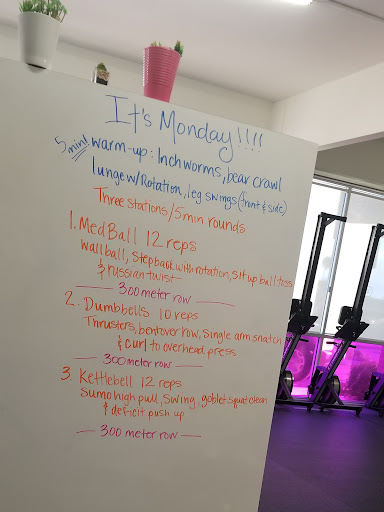 It's Monday!!!!
5 min! warm-up: Inchworms, bear crawl
lunge w/Rotation, leg swings (front & side)
Three stations/5min rounds
1. MedBall 12 reps
wallball, step back with rotation, sit up ball toss
& russian twist
300 meter row
2. Dumbbells 10 reps
Thrusters, bentover row, single arm snatch
& curl to overhead press
300 meter row
3. Kettlebell 12 reps
Sumo high pull, swing, goblet squat clean
& deficit push up
300 meter row